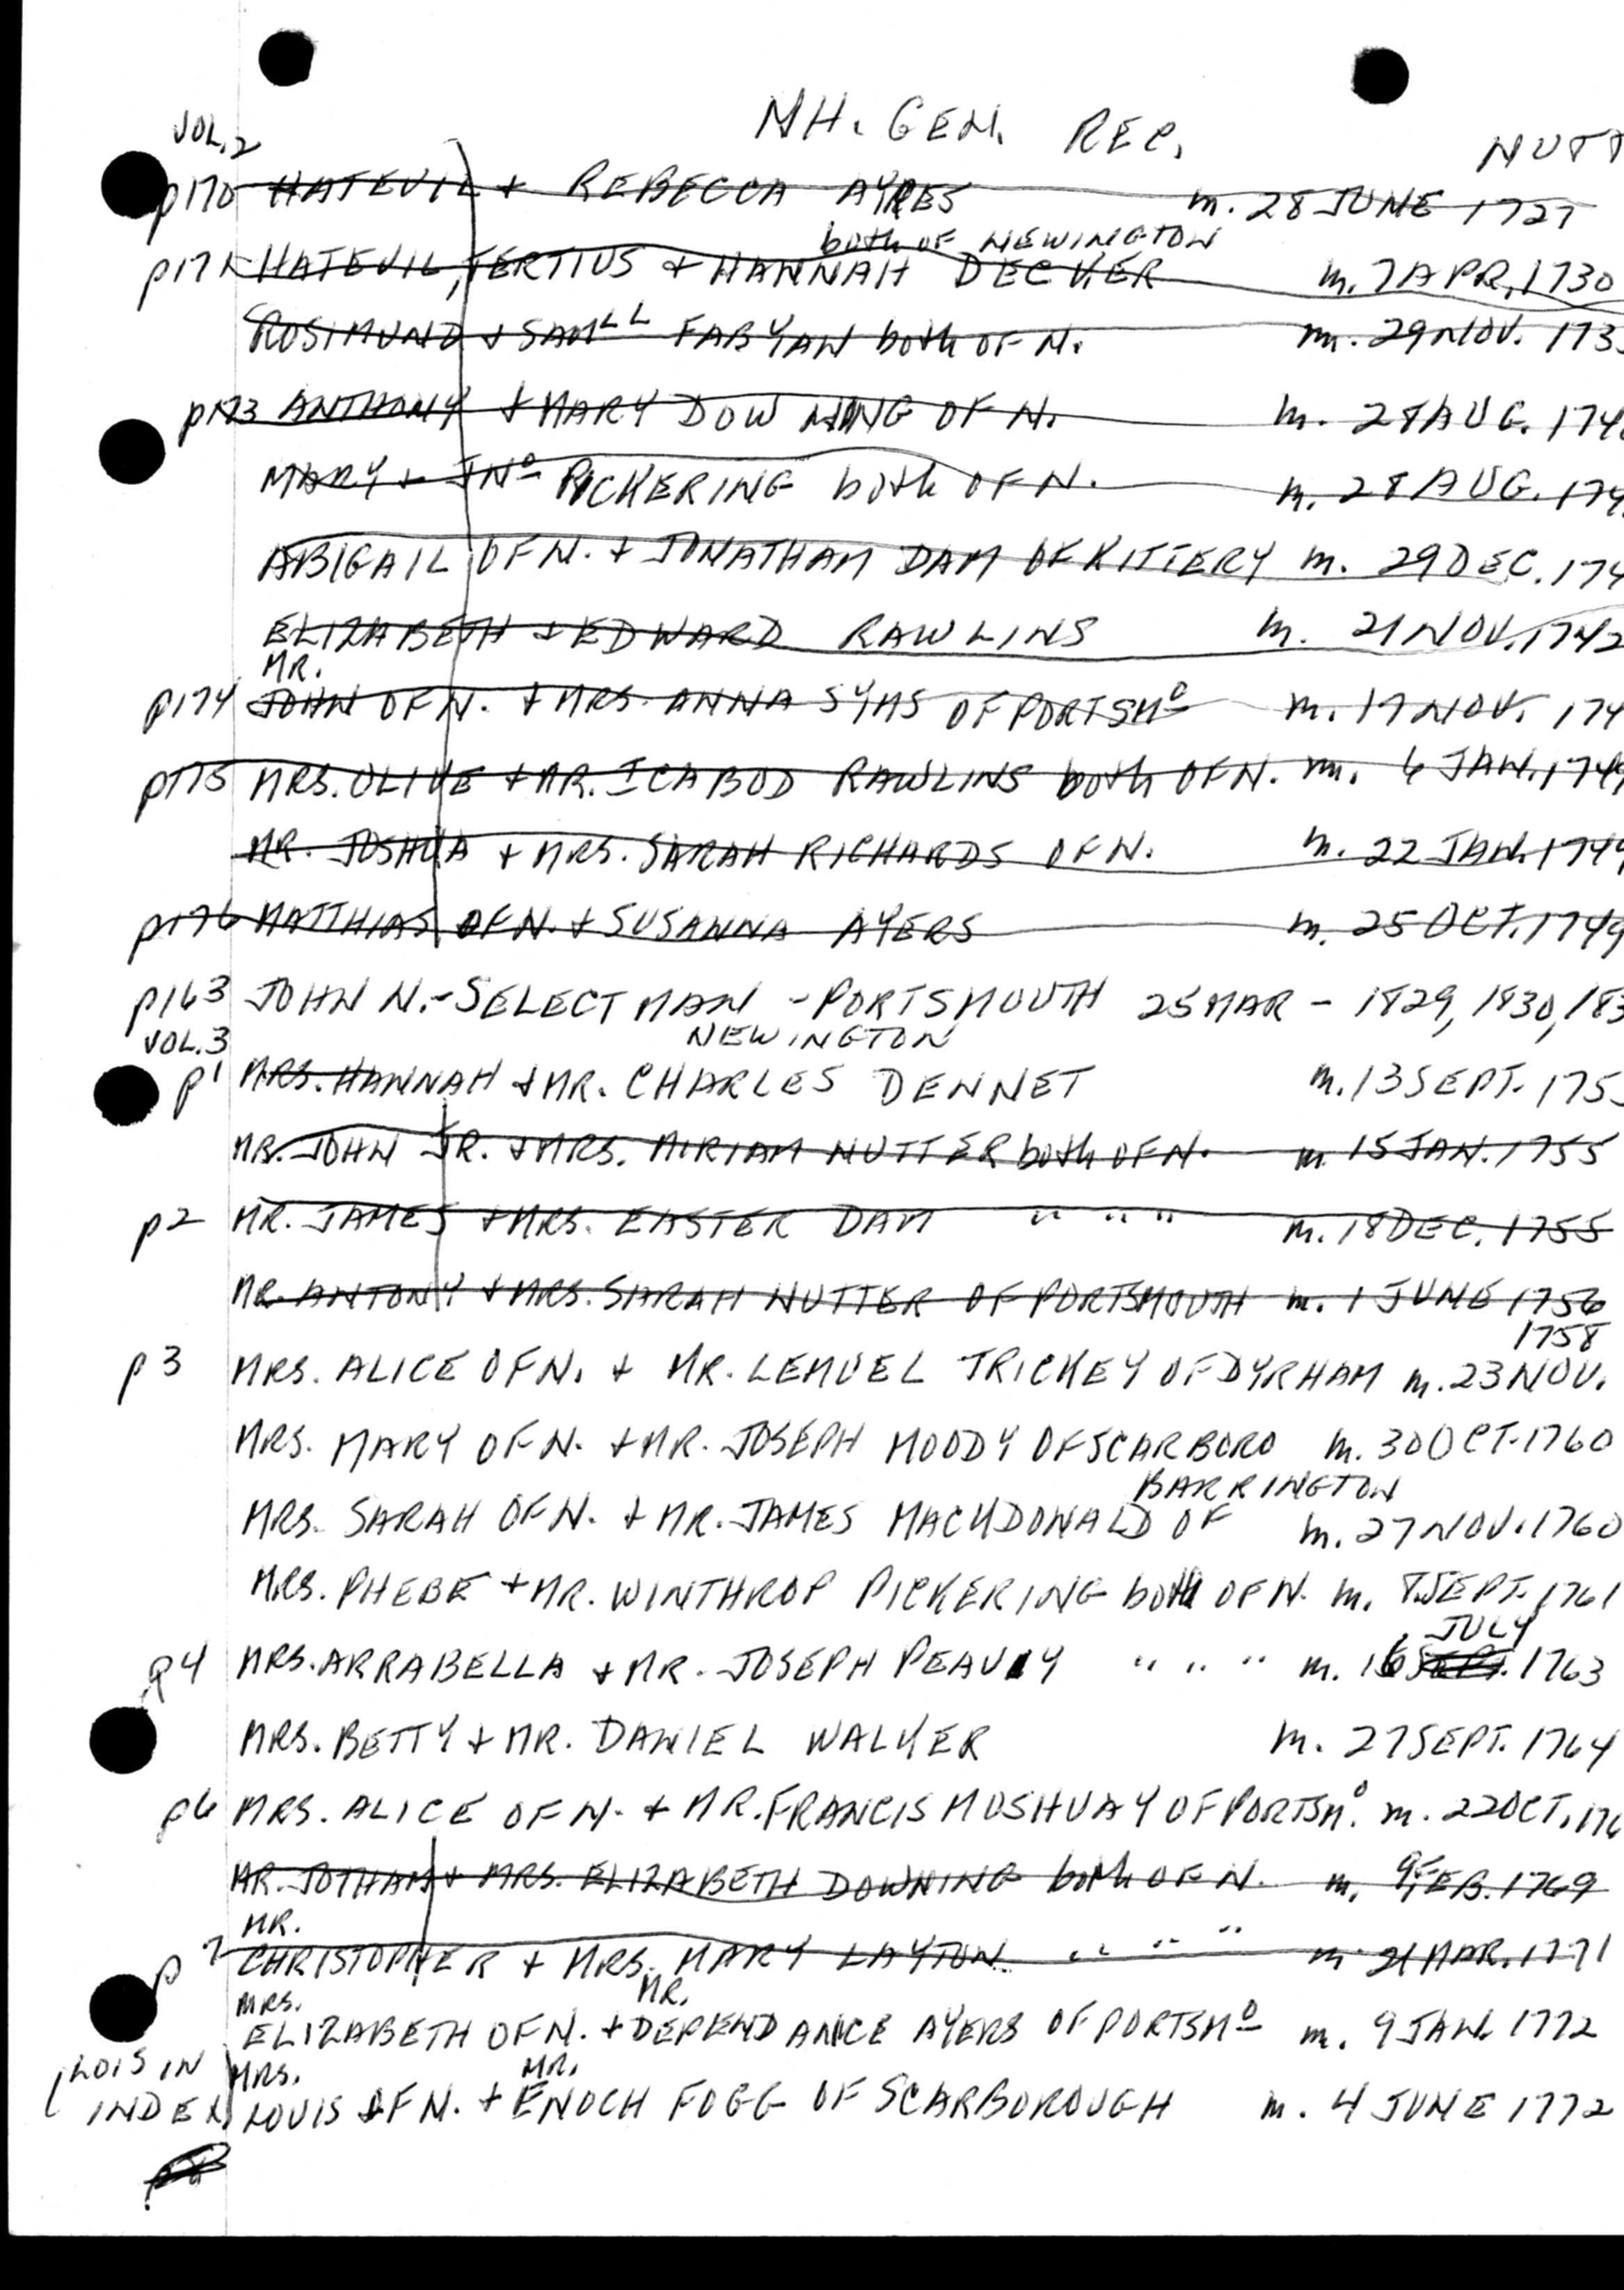 NH. GEN. REC. NUTT
VOL. 2
p170 HATEVIL + REBECCA AYRES m. 28 JUNE 1727
both OF NEWINGTON
p171 HATEVIL, TERTIUS + HANNAH DECKER m. 7 APR. 1730
ROSIMUND + SAMLL FABYAN both OF N. m. 29 NOV. 173
p173 ANTHONY + MARY DOWNING OF N. m. 28 AUG. 174
MARY + JNO PICKERING both OF N. m. 28 AUG. 174
ABIGAIL OF N. + JONATHAN DAM OF KITTERY m. 29 DEC. 174
ELIZABETH + EDWARD RAWLINS m. 21 NOV. 1742
MR.
p174 JOHN OF N. + MRS. ANNA SYMS OF PORTSMO m. 17 NOV. 174
p175 MRS. OLIVE + MR. ICABOD RAWLINS both OF N. m. 6 JAN. 174
MR. JOSHUA + MRS. SARAH RICHARDS OF N. m. 22 JAN. 174
p176 MATTHIAS OF N. + SUSANNA AYERS m. 25 OCT. 1749
p163 JOHN N. - SELECTMAN - PORTSMOUTH 25 MAR - 1829, 1830, 183
VOL. 3 NEWINGTON
p1 MRS. HANNAH + MR. CHARLES DENNET m. 13 SEPT. 175
MR. JOHN JR. + MRS. MIRIAM NUTTER both OF N. m 15 JAN. 1755
p2 MR. JAMES + MRS. EASTER DAM " " " m. 18 DEC. 1755
MR. ANTONY + MRS. SARAH NUTTER OF PORTSMOUTH m. 1 JUNE 1756
1758
p3 MRS. ALICE OF N. + MR. LEMUEL TRICKEY OF DYRHAM m. 23 NOV.
MRS. MARY OF N. + MR. JOSEPH MOODY OF SCARBORO m. 30 OCT. 1760
BARRINGTON
MRS. SARAH OF N. + MR. JAMES MACKDONALD OF m. 27 NOV. 1760
MRS. PHEBE + MR. WINTHROP PICKERING both OF N. m. 8 SEPT. 1761
JULY
p4 MRS. ARRABELLA + MR. JOSEPH PEAVEY " " " m. 16 SEPT. 1763
MRS. BETTY + MR. DANIEL WALKER m. 27 SEPT. 1764
p6 MRS. ALICE OF N. + MR. FRANCIS MUSHUAY OF PORTSMO. m. 22 OCT. 176
MR. JOTHAM + MRS. ELIZABETH DOWNING both OF N. m. 9 FEB. 1769
MR.
p7 CHRISTOPHER + MRS. MARY LAYTON " " " m. 21 MAR. 1771
MRS. MR.
ELIZABETH OF N. + DEPENDANCE AYERS OF PORTSMO m. 9 JAN. 1772
(LOIS IN MRS. MR.
INDEX) LOUIS OF N. + ENOCH FOGG OF SCARBOROUGH m. 4 JUNE 1772